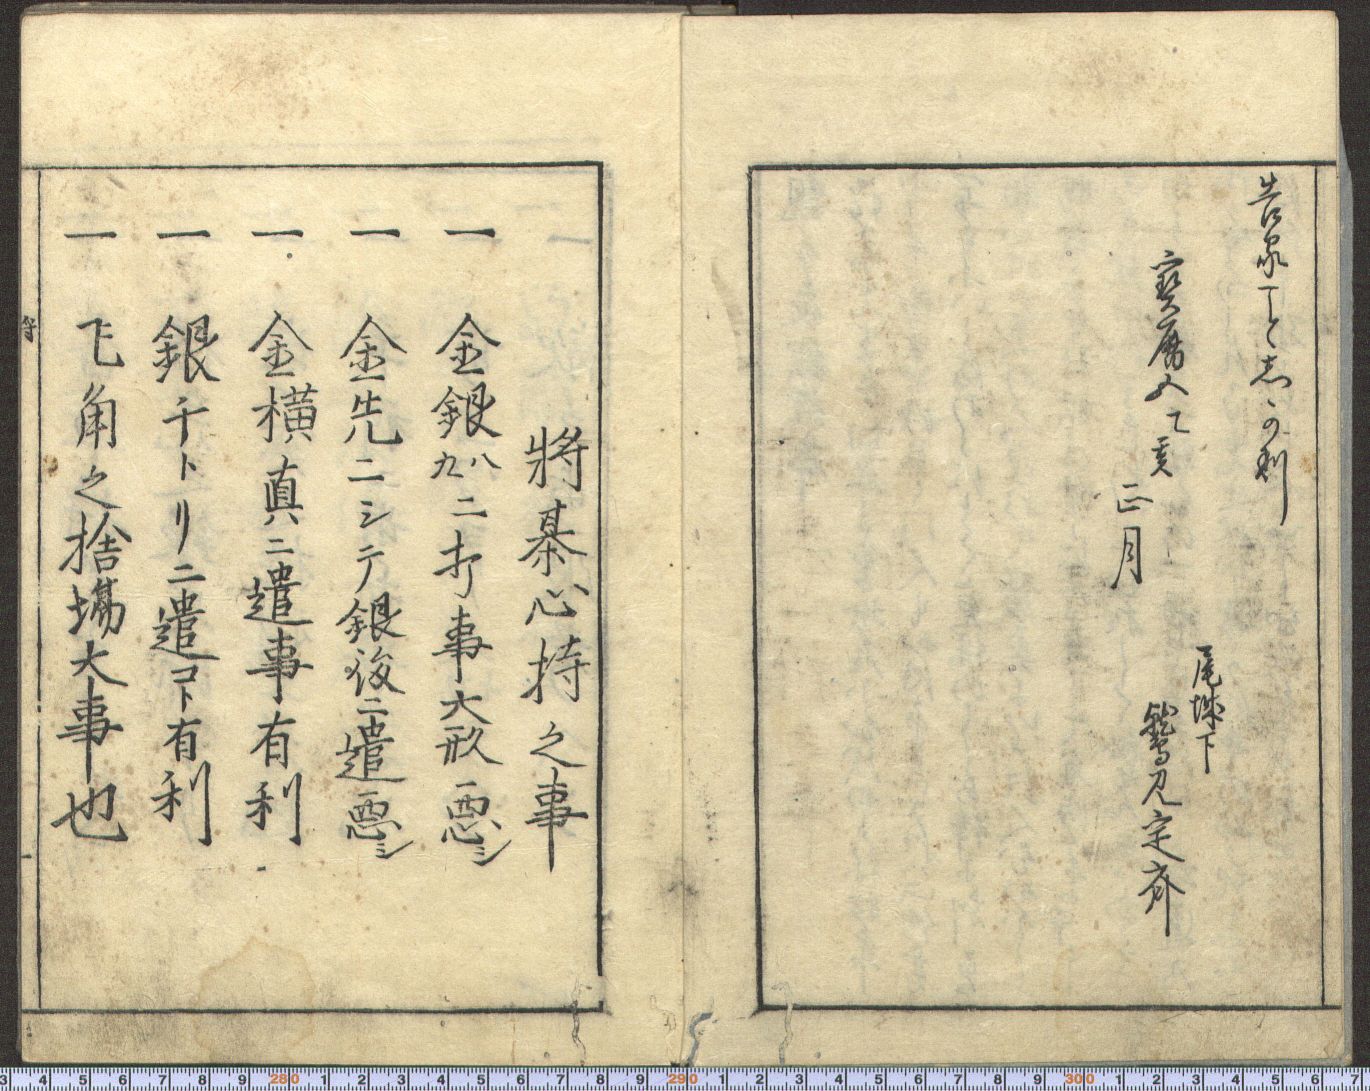 寳暦五乙亥
正月
尾城下
鷲見定斎
將棊心持之事
一 金銀八九ニ打事大形悪シ
一 金先ニシテ銀後ニ遣悪シ
一 金横真ニ遣事有利
一 銀千トリニ遣コト有利
一 飛角之捨場大事也